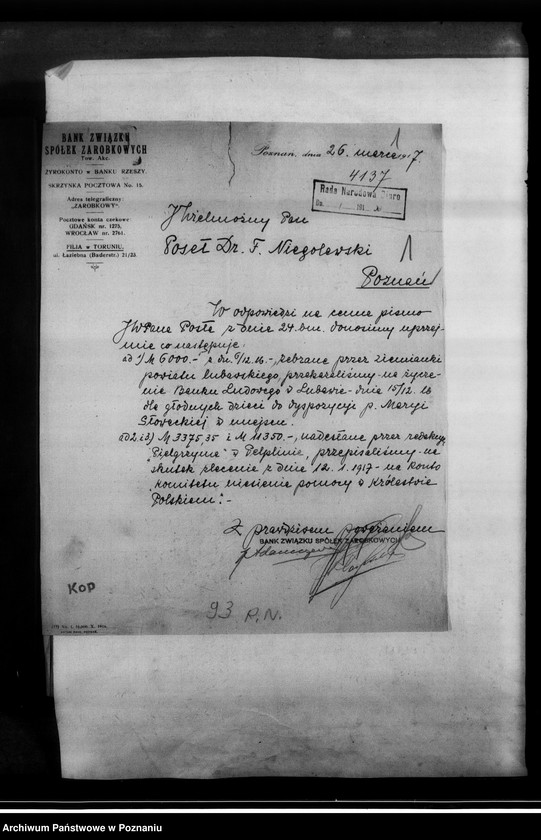 BANK ZWIĄZKU
SPÓŁEK ZAROBKOWYCH
Tow. Akc.
ŻYROKONTO w BANKU RZESZY.
SKRZYNKA POCZTOWA No. 15.
Adres telegraficzny:
„ZAROBKOWY“.
Pocztowe konta czekowe:
GDAŃSK nr. 1275,
WROCŁAW nr. 2761.
FILIA w TORUNIU,
ul. Łazielna (Baderstr.) 21/23.
Poznań, dnia 26. marca 1917.
4137
Rada Narodowa Biuro
JWielmożny Pan
Poseł Dr. F. Niegolewski
Poznań
W odpowiedzi na cenne pismo
JWPana Posła z dnia 24. bm. donosimy uprzej-
mie co następuje:
ad 1) M 6000.- z dn. 9/12.16.-, zebrane przez ziemianki
powiatu lubawskiego, przekazaliśmy na życze-
nie Banku Ludowego w Lubawie dnia 15/12. 16
dla głodnych dzieci do dyspozycji p. Maryi
Słoveckiej w miejscu.
ad 2 i 3) M 3375,35 i M 11350.-, nadesłane przez redakcyę
"Pielgrzyma" w Pelplinie, przepisaliśmy na
skutek zlecenia z dnia 12. 1. 1917 na konto
"Komitetu niesienia pomocy w Królestwie
Polskiem".-
Z prawdziwem poważaniem
BANK ZWIĄZKU SPÓŁEK ZAROBKOWYCH
Kop
93 R.N.
Archiwum Państwowe w Poznaniu